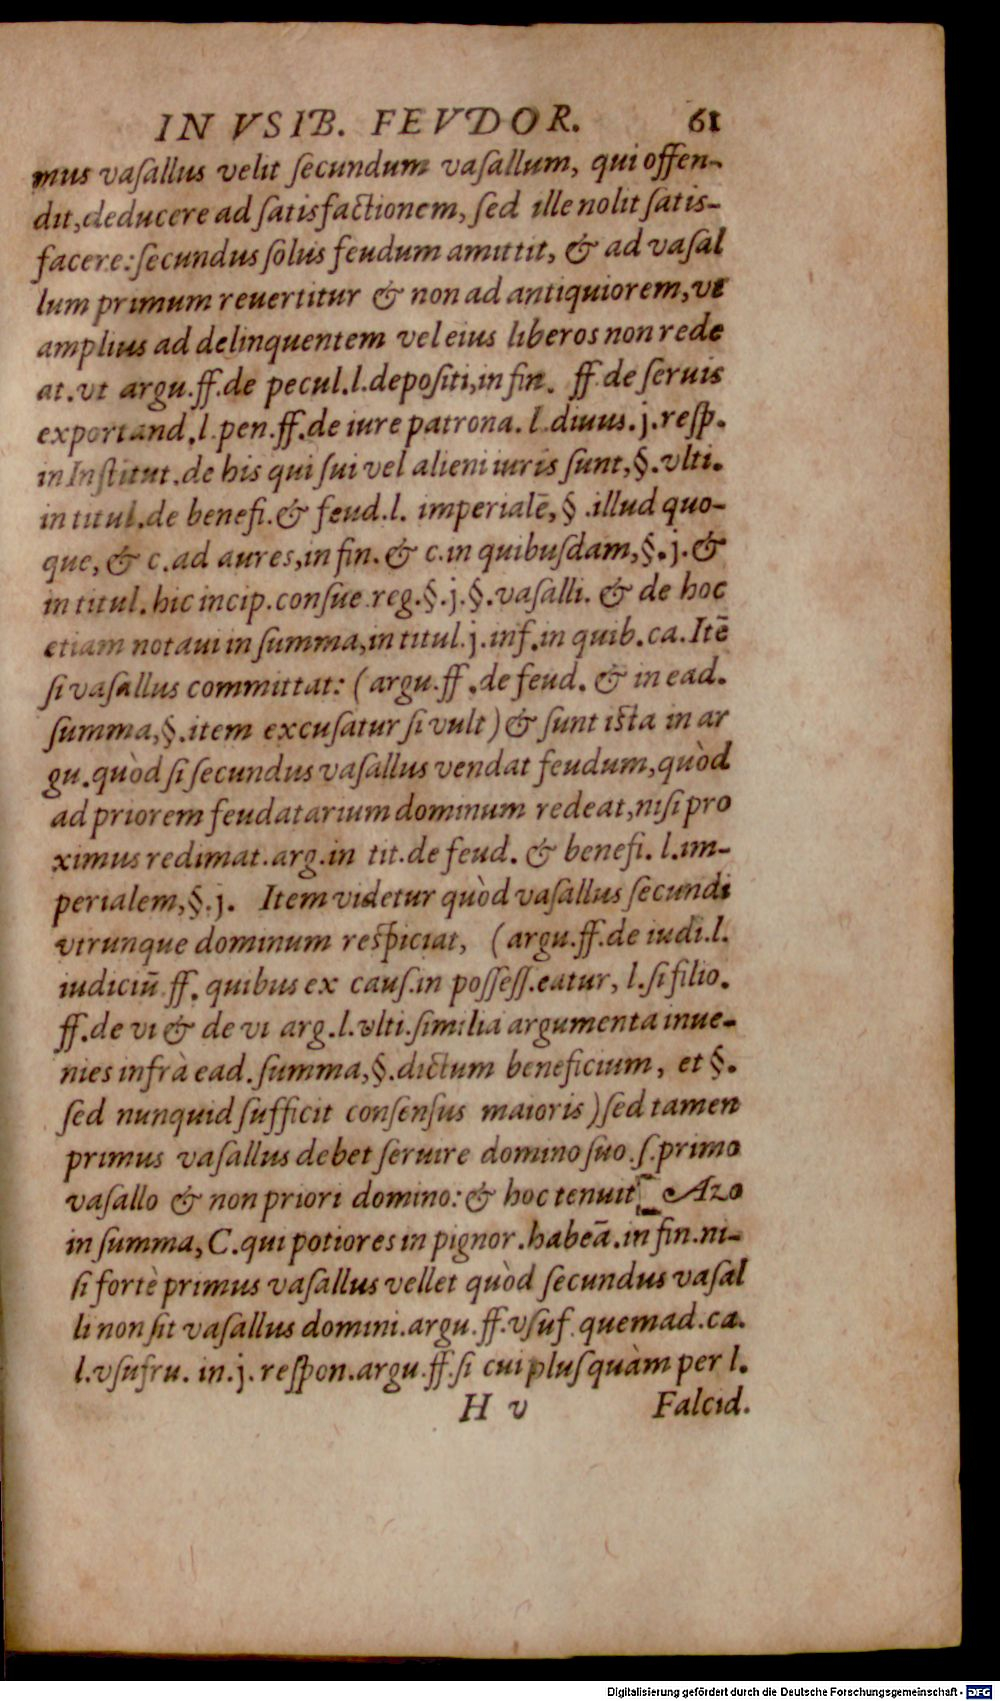 IN VSIB. FEVDOR. 61
mus vaſallus velit ſecundum vaſallum, qui offen-
dit, deducere ad ſatisfactionem, ſed ille nolit ſatis-
facere: ſecundus ſolus feudum amittit, & ad vaſal
lum primum reuertitur & non ad antiquiorem, vt
amplius ad delinquentem vel eius liberos non rede
at. vt argu. ff. de pecul. l. depoſiti, in fin. ff. de ſeruis
exportand. l. pen. ff. de iure patrona. l. diuus. j. reſp.
in Inſtitut. de his qui ſui vel alieni iuris ſunt, §. vlti.
in titul. de benefi. & feud. l. imperialē, §. illud quo-
que, & c. ad aures, in fin. & c. in quibuſdam, §. j. &
in titul. hic incip. conſue. reg. §. j. §. vaſalli. & de hoc
etiam notaui in ſumma, in titul. j. inf. in quib. ca. Itē
ſi vaſallus committat: (argu. ff. de feud. & in ead.
ſumma, §. item excuſatur ſi vult) & ſunt iſta in ar
gu. quòd ſi ſecundus vaſallus vendat feudum, quòd
ad priorem feudatarium dominum redeat, niſi pro
ximus redimat. arg. in tit. de feud. & benefi. l. im-
perialem, §. j. Item videtur quòd vaſallus ſecundi
vtrunque dominum reſpiciat, (argu. ff. de iudi. l.
iudiciū ff. quibus ex cauſ. in poſſeſſ. eatur, l. ſi filio.
ff. de vi & de vi arg. l. vlti. ſimilia argumenta inue-
nies infrà ead. ſumma, §. dictum beneficium, et §.
ſed nunquid ſufficit conſenſus maioris) ſed tamen
primus vaſallus debet ſeruire domino ſuo. ſ. primo
vaſallo & non priori domino: & hoc tenuit [ Azo
in ſumma, C. qui potiores in pignor. habeā. in fin. ni-
ſi fortè primus vaſallus vellet quòd ſecundus vaſal
li non ſit vaſallus domini. argu. ff. vſuf. quemad. ca.
l. vſufru. in. j. reſpon. argu. ff. ſi cui pluſquàm per l.
H v Falcid.
Digitalisierung gefördert durch die Deutsche Forschungsgemeinschaft - DFG